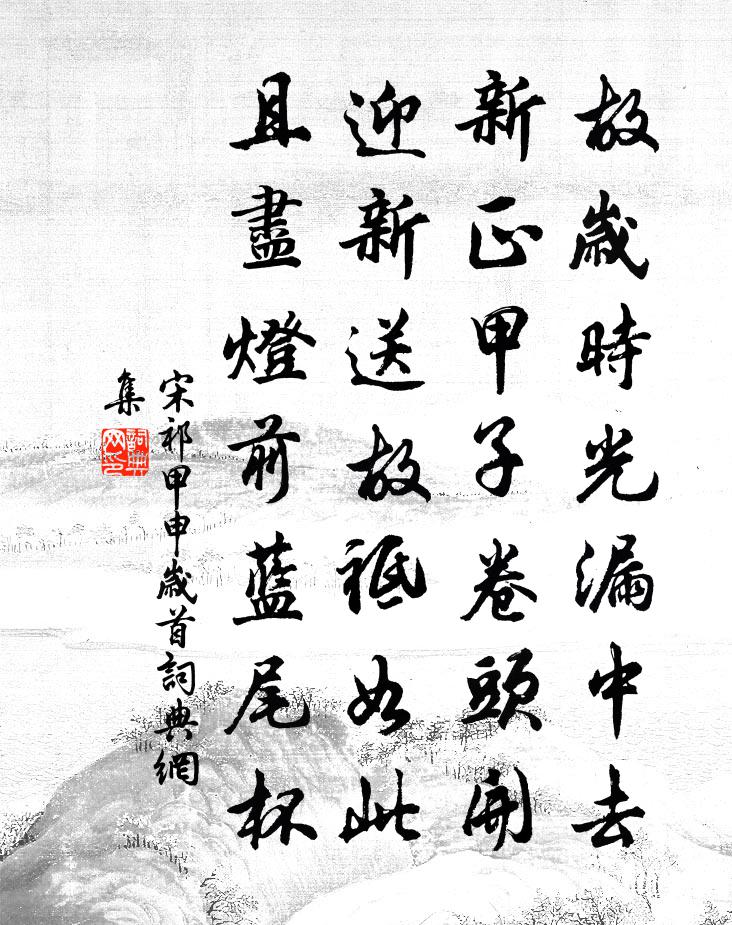 故歲時光漏中去
新正甲子卷頭開
迎新送故祇如此
且盡燈前藍尾杯
宋祁甲申歲首詞典網
集
詞典
网印